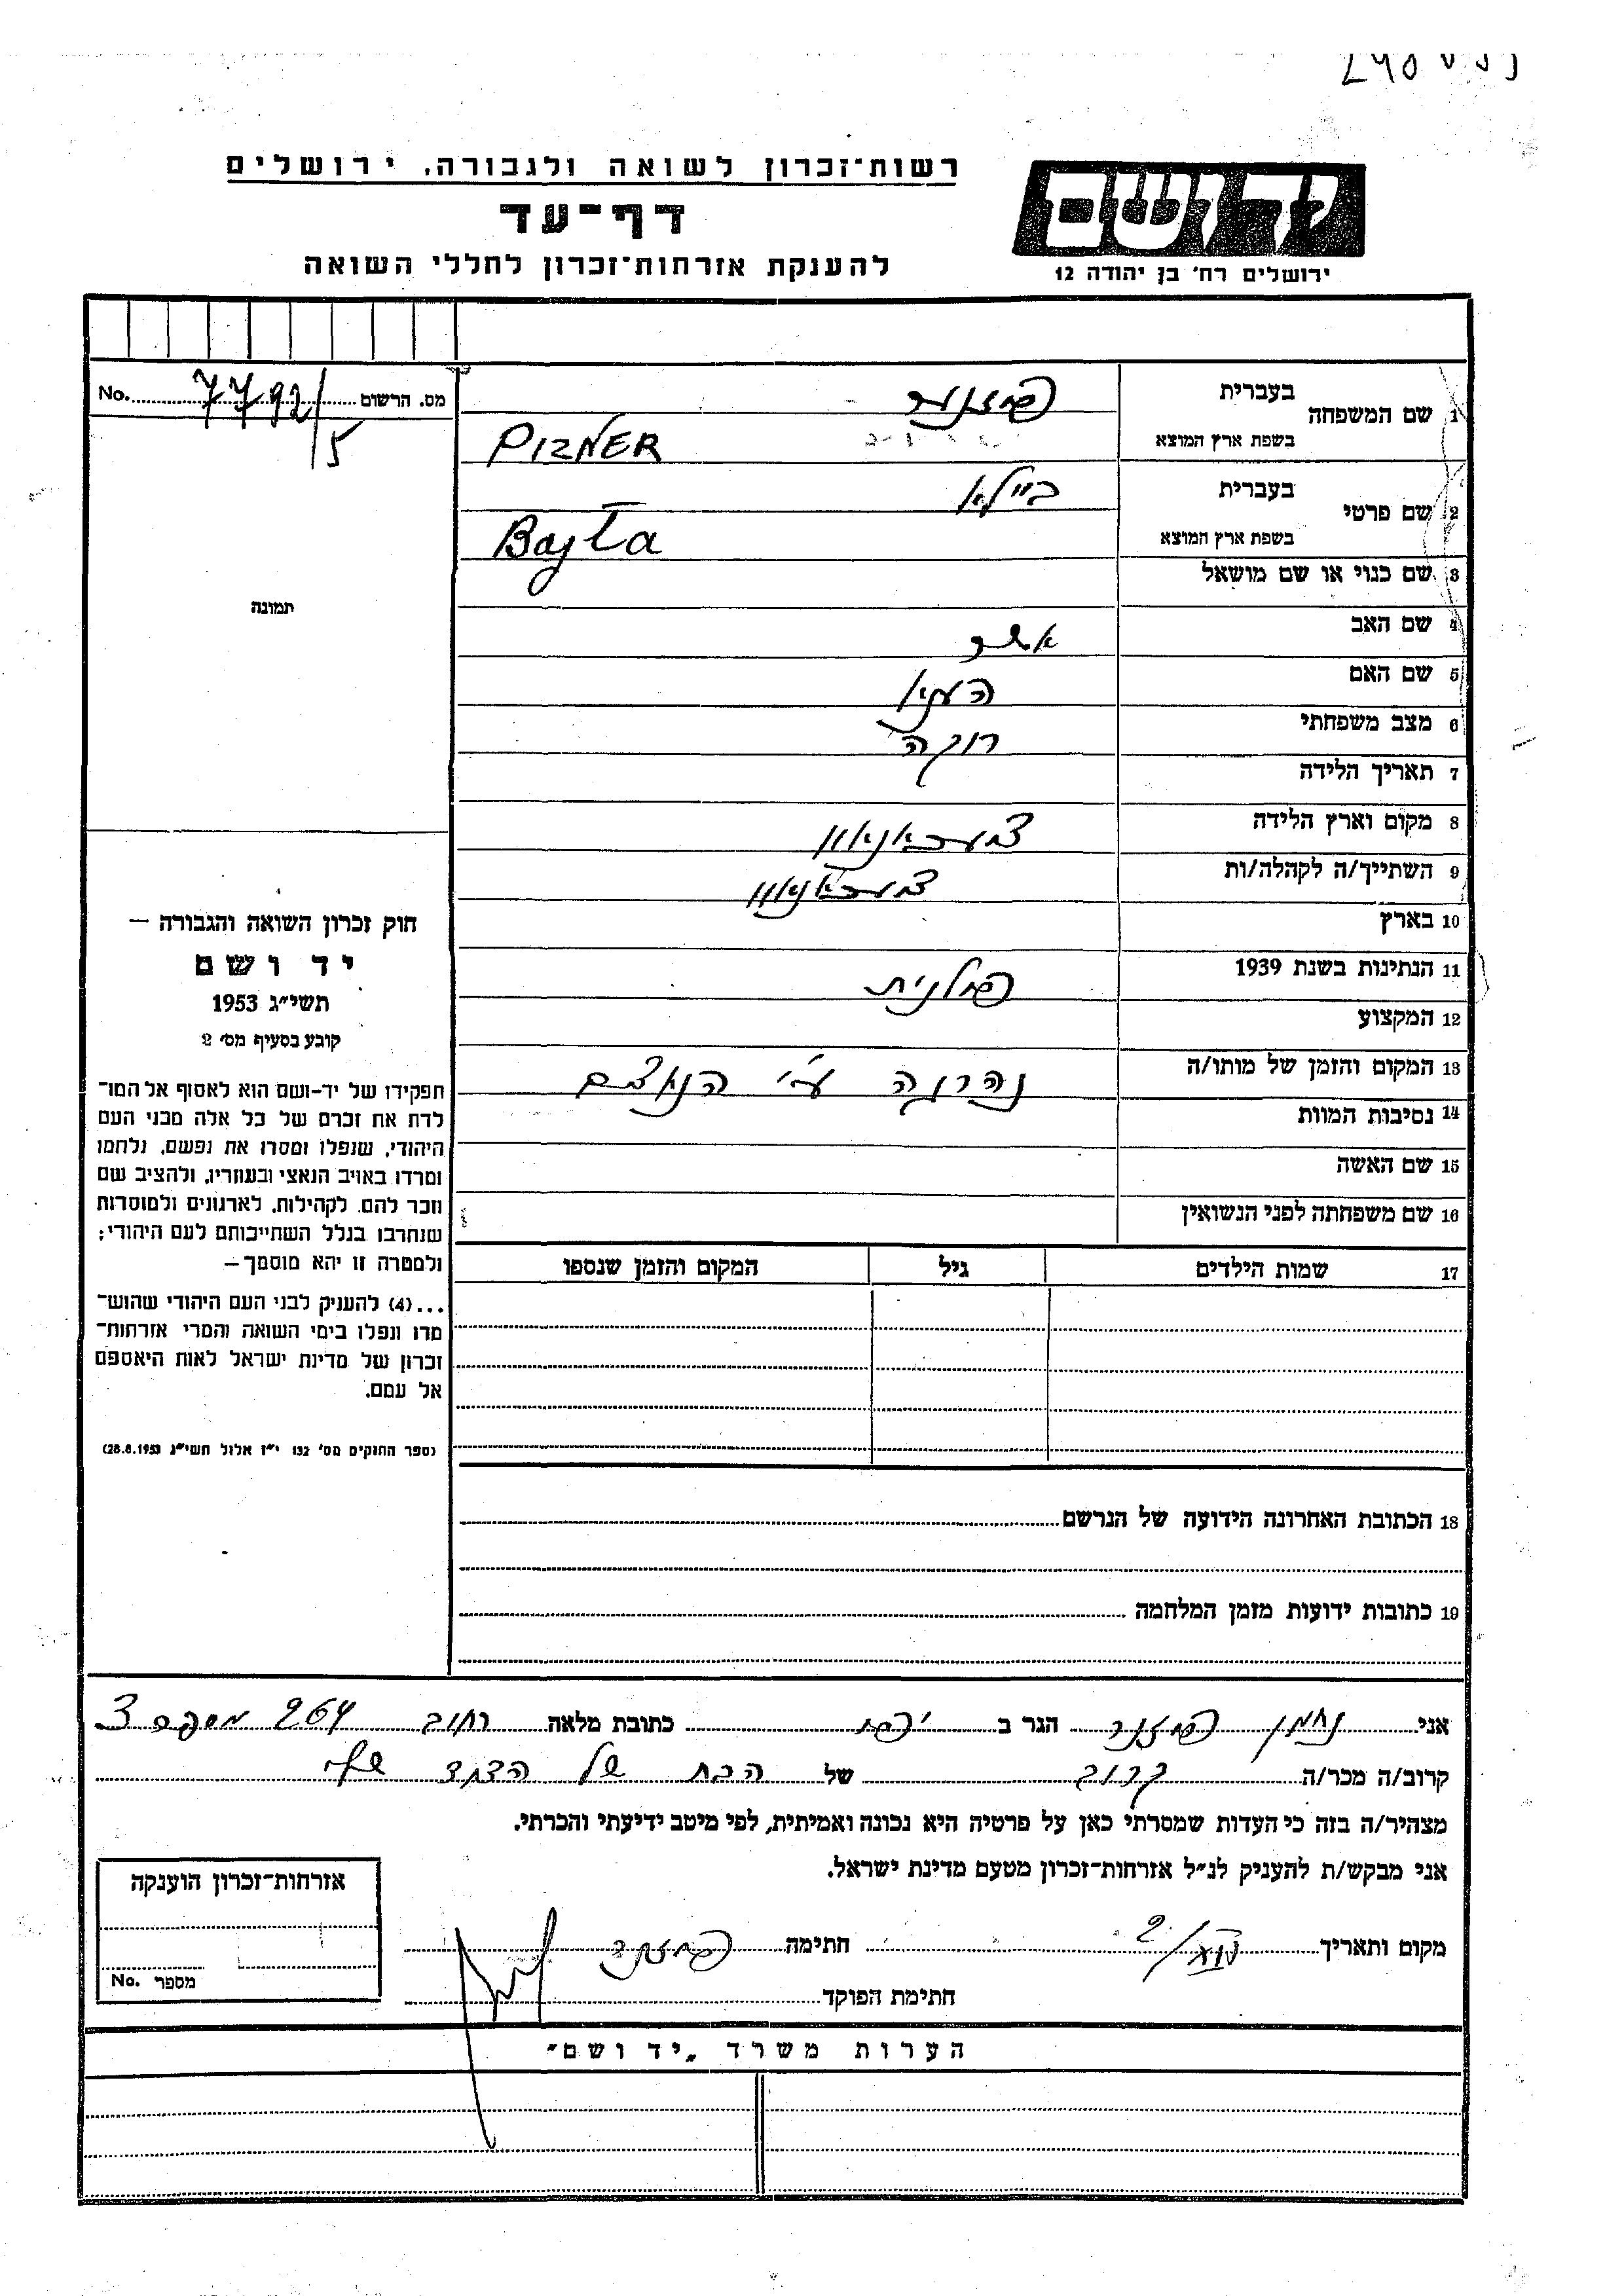 רשות־זכרון לשואה ולגבורה, ירושלים
יד ושם
דף־עד
להענקת אזרחות־זכרון לחללי השואה
ירושלים רח׳ בן יהודה 12
מס. הרשום 7792/5 No.
1 שם המשפחה
בעברית פיזנר
בשפת ארץ המוצא PIZNER
2 שם פרטי
בעברית ביילא
בשפת ארץ המוצא Bajla
3 שם כנוי או שם מושאל
4 שם האב אשר
5 שם האם
6 מצב משפחתי רוקה
7 תאריך הלידה
8 מקום וארץ הלידה
9 השתייך/ה לקהלה/ות
10 בארץ
11 הנתינות בשנת 1939 פולנית
12 המקצוע
13 המקום והזמן של מותו/ה נהרגה ע״י הנאצים
14 נסיבות המוות
15 שם האשה
16 שם משפחתה לפני הנשואין
17 שמות הילדים גיל המקום והזמן שנספו
תמונה
חוק זכרון השואה והגבורה –
יד ושם
תשי״ג 1953
קובע בסעיף מס׳ 2
תפקידו של יד-ושם הוא לאסוף אל המו־
לדת את זכרם של כל אלה מבני העם
היהודי, שנפלו ומסרו את נפשם, נלחמו
ומרדו באויב הנאצי ובעוזריו, ולהציב שם
וזכר להם, לקהילות, לארגונים ולמוסדות
שנחרבו בגלל השתייכותם לעם היהודי;
ולמטרה זו יהא מוסמך –
...(4) להעניק לבני העם היהודי שהוש־
מדו ונפלו בימי השואה והמרי אזרחות־
זכרון של מדינת ישראל לאות היאספם
אל עמם.
(ספר החוקים מס׳ 132 י״ז אלול תשי״ג 28.8.1953)
18 הכתובת האחרונה הידועה של הנרשם
19 כתובות ידועות מזמן המלחמה
אני נחמן פיזנר הגר ב יפו כתובת מלאה רחוב 264 מספר 3
קרוב/ה מכר/ה קרוב של הבת של הדוד שלי
מצהיר/ה בזה כי העדות שמסרתי כאן על פרטיה היא נכונה ואמיתית, לפי מיטב ידיעתי והכרתי.
אני מבקש/ת להעניק לנ״ל אזרחות־זכרון מטעם מדינת ישראל.
מקום ותאריך חתימה פיזנר
חתימת הפוקד
אזרחות־זכרון הוענקה
מספר No.
הערות משרד „יד ושם״